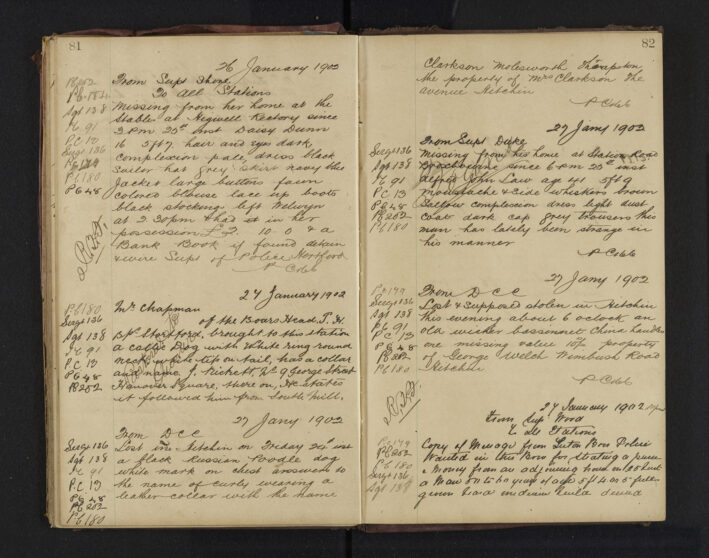 81
26 January 1902
From Supt Shore
To All Stations
Missing from her home at the
Stable at Rectory since
2 PM 25th Inst Daisy Dunn
16 5ft7 hair and eyes dark
complexion pale, dress black
Sailor hat grey skirt navy blue
Jacket large buttons fawn
colored blouse lace up boots
black stocking left Welwyn
at 2.30pm & had in her
possession £2.10.0 & a
Bank Book if found detain
& wire Supt of Police Hertford
P Cobb
PC 202
PC 184
Sgt 138
PC 91
PC 13
Sergt 136
PC 180
PC 48
27 January 1902
Mr Chapman
of the Boars Head, P.H.
Bps Stortford, brought to this Station
a Collie Dog with White ring round
neck white tip on tail, has a collar
and name J. Rickett, No 9 George Street
Hanover Square, there on, He states
it followed him from South Mill.
PC 180
Sergt 136
Sgt 138
PC 91
PC 13
PC 48
PC 202
27 Jany 1902
From D C C
Lost in Hitchin on Friday inst
a black Russian Poodle dog
white mark on chest answers to
the name of Curly wearing a
leather collar with the name
Sergt 136
Sgt 138
PC 91
PC 13
PC 48
PC 202
PC 180
82
Clarkson Molesworth Thompson
the property of Mrs Clarkson The
avenue Hitchin
P Cobb
27 Jany 1902
From Supt Duke
Missing from his home at Station Road
Broxbourne since 6 PM 25 inst
Alfred John Law age 5ft 9
Moustache & Side whiskers brown
Sallow complexion dress light dust
coat dark cap grey trousers this
man has lately been strange in
his manner
P Cobb
Sergt 136
Sgt 138
PC 91
PC 13
PC 48
PC 202
PC 180
27 Jany 1902
From D C C
Lost & Supposed stolen in Hitchin
this evening about 6 oclock an
old wicker bassonnet China handles
one missing value 10/- property
of George Welch Wimbush Road
Hitchin
P Cobb
PC 179
Sergt 136
Sgt 138
PC 91
PC 13
PC 48
PC 202
PC 180
27 January 1902
From Sup Wood
To all Stations
Copy of Message from Luton Boro Police
Wanted in this Boro for Stealing a purse
& Money from an adjoining house
a Man years of age 5ft 4 or 5
PC 179
PC 202
PC 180
Sergt 136
Sgt 138